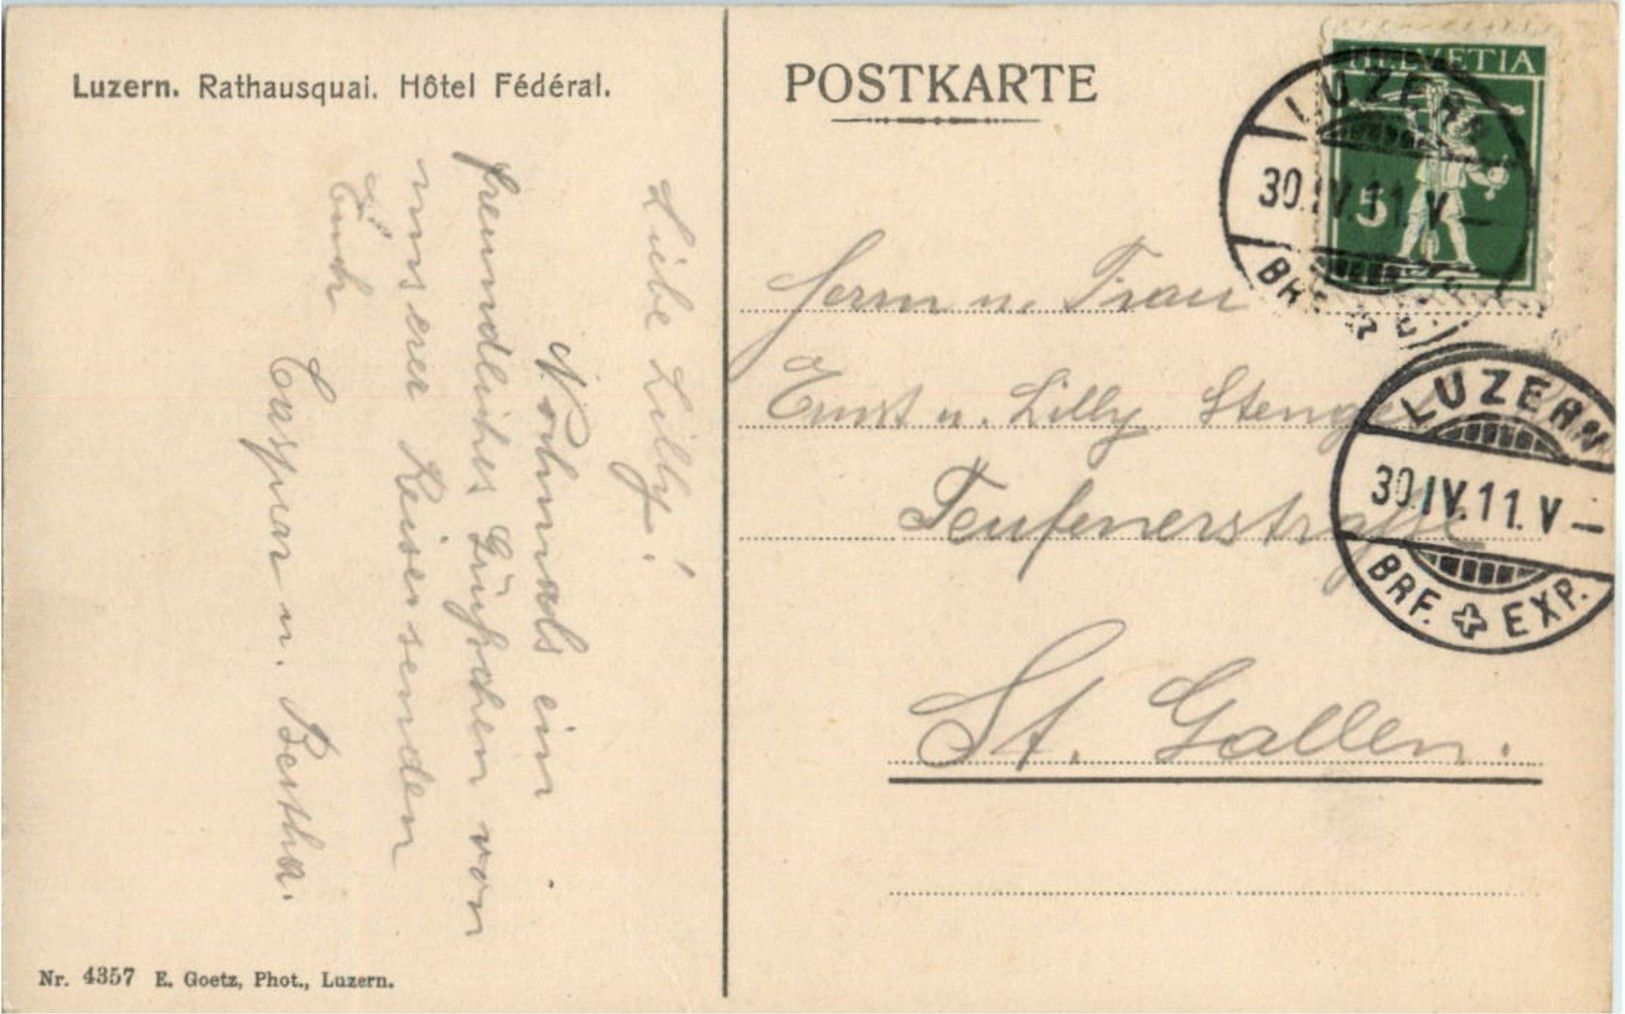 Luzern. Rathausquai. Hôtel Fédéral.
Liebe Lilly!
Nochmals ein
freundliches Grüßchen von
unserer Reise senden
Euch
Caspar u. Bertha.
Nr. 4357 E. Goetz, Phot., Luzern.
POSTKARTE
HELVETIA
5
LUZERN
30.IV.11.V–
BRF. EXP.
Herrn u. Frau
Ernst u. Lilly Stengel
Teufenerstraße
St. Gallen.
LUZERN
30.IV.11.V–
BRF. EXP.